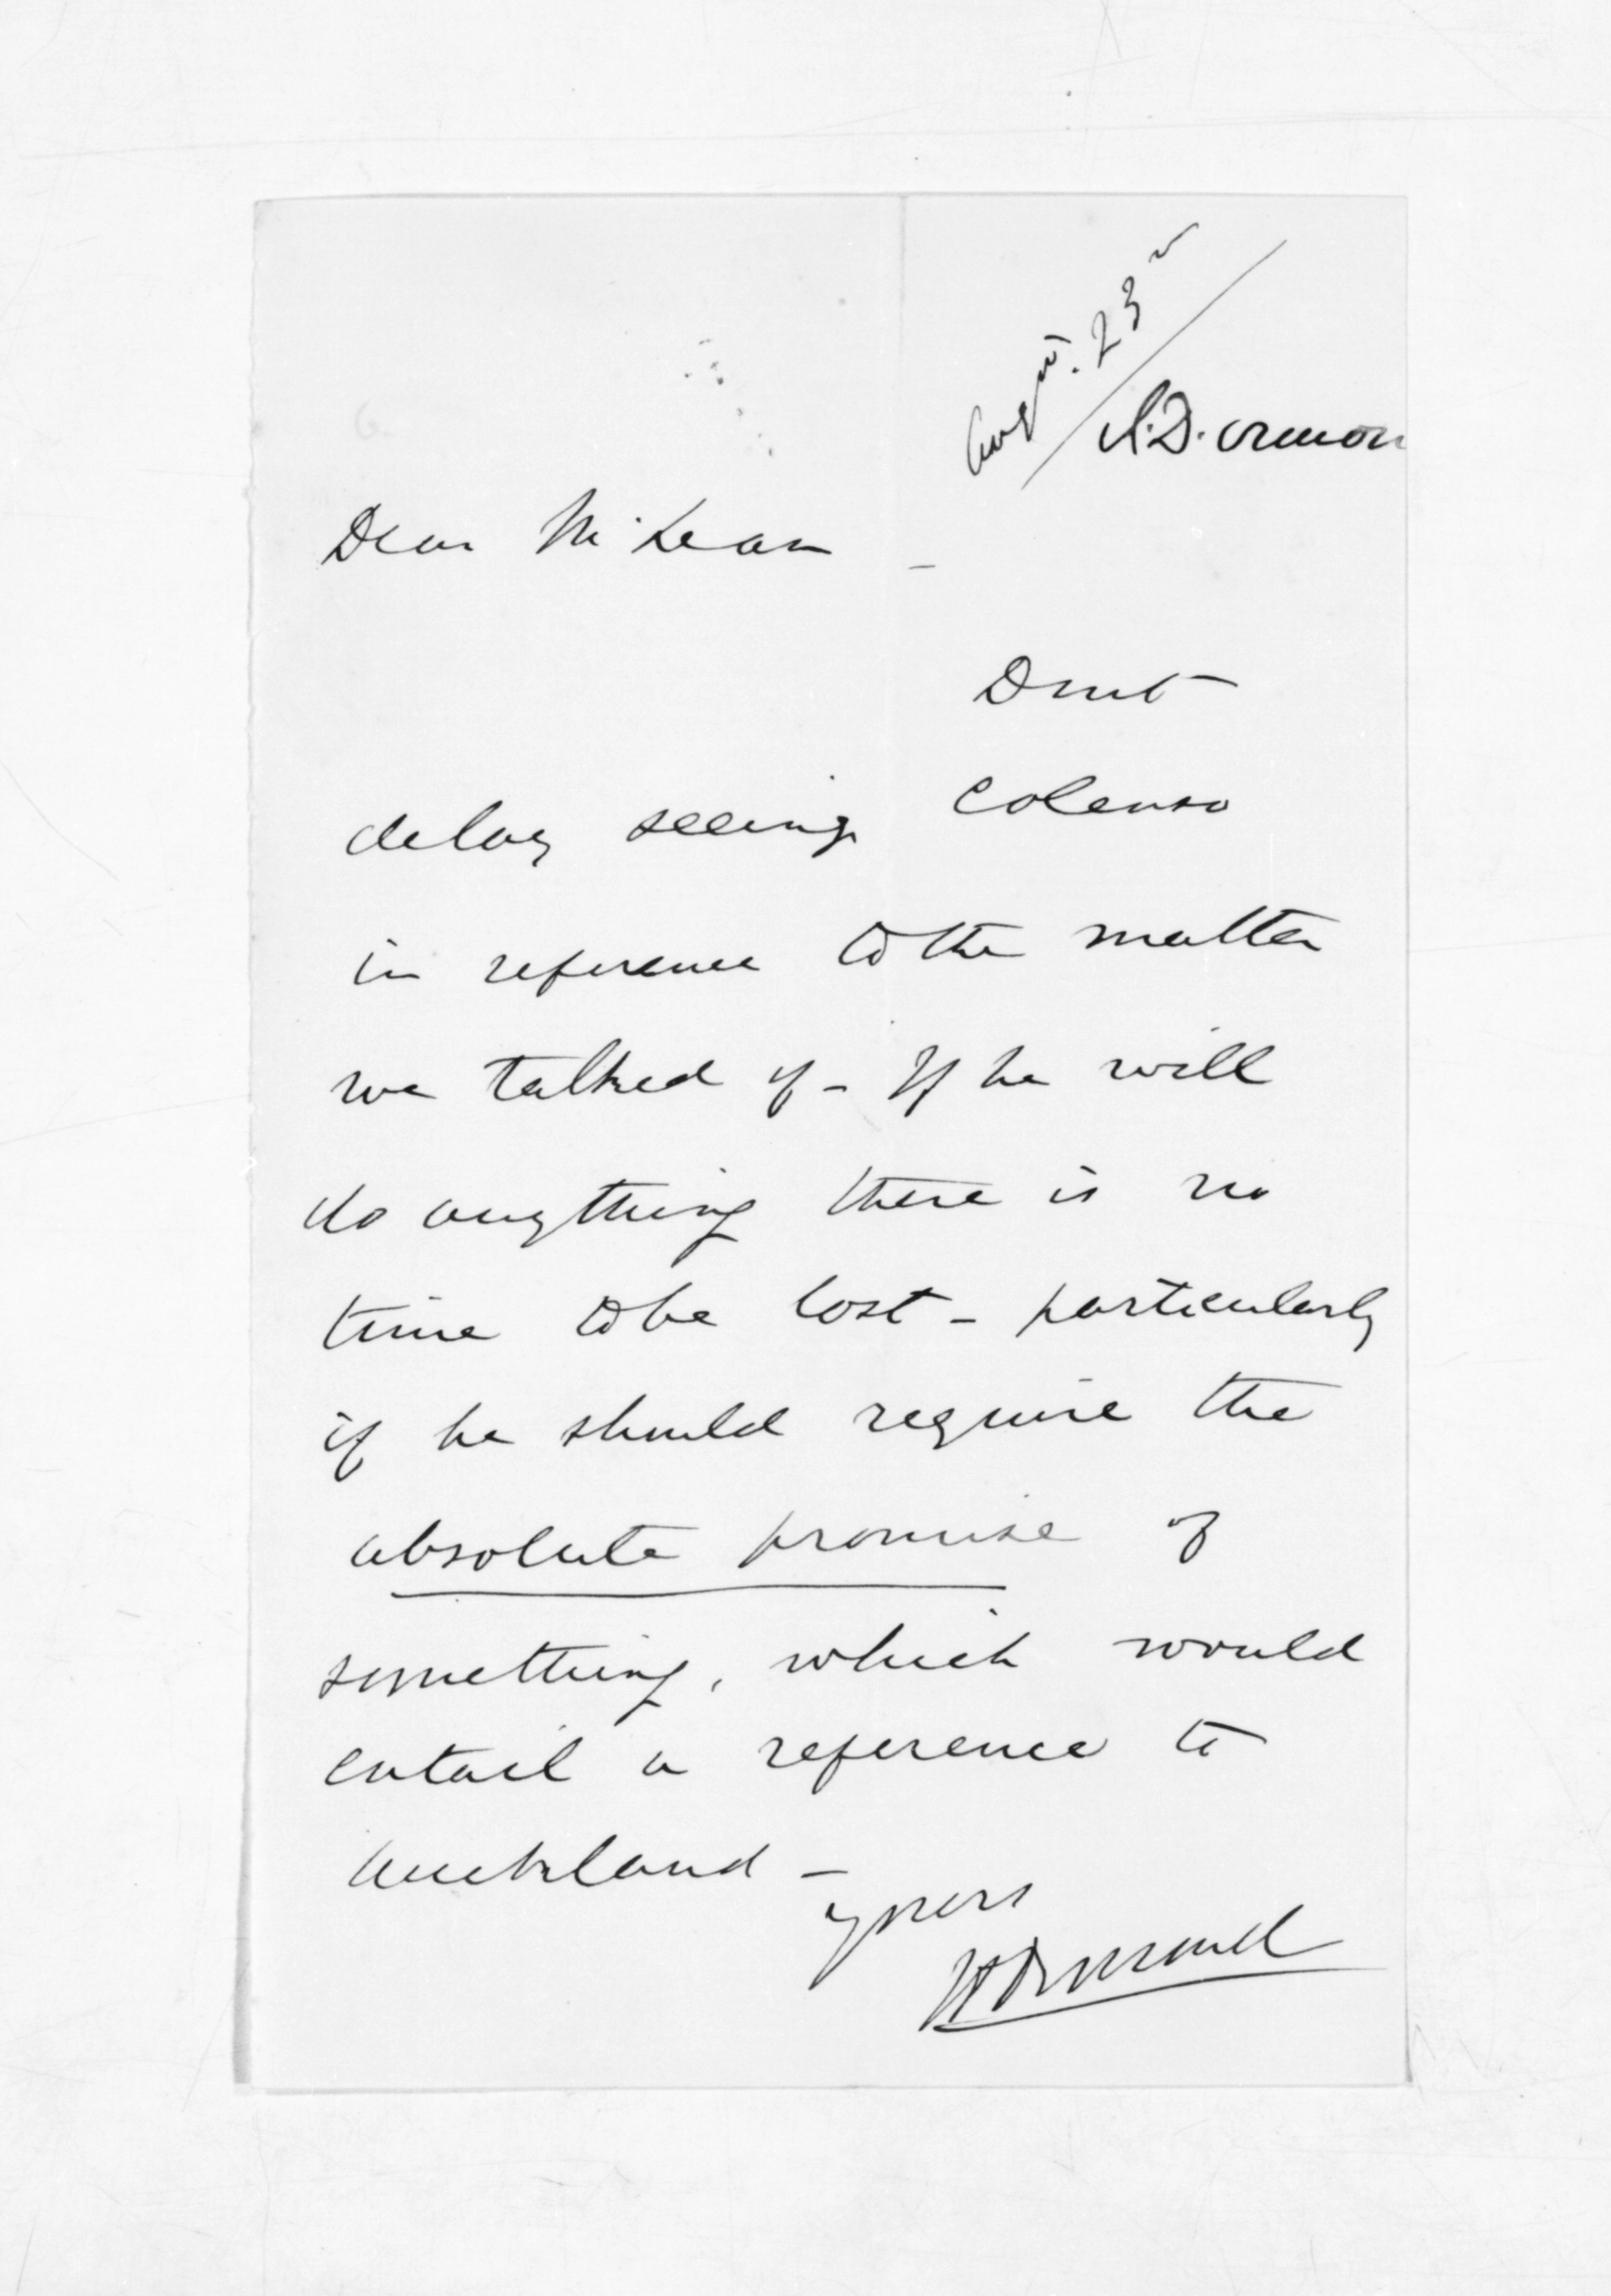 August. 23
J.D. Ormon
Dear McLean -
Dont
delay seeing Colenso
in reference to the matter
we talked of - If he will
do anything there is no
time to be lost - particularly
if he should require the
absolute promise of
something, which would
entail a reference to
Auckland -
yours
JDOrmond